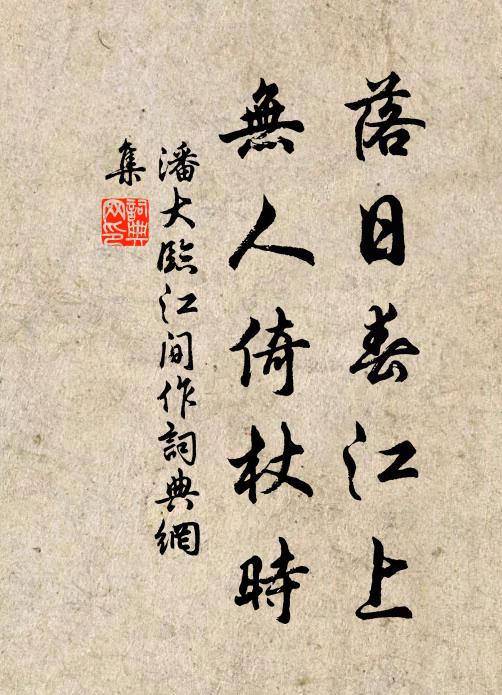 落日春江上
無人倚杖時
潘大臨江間作詞典網
集
詞典
网印